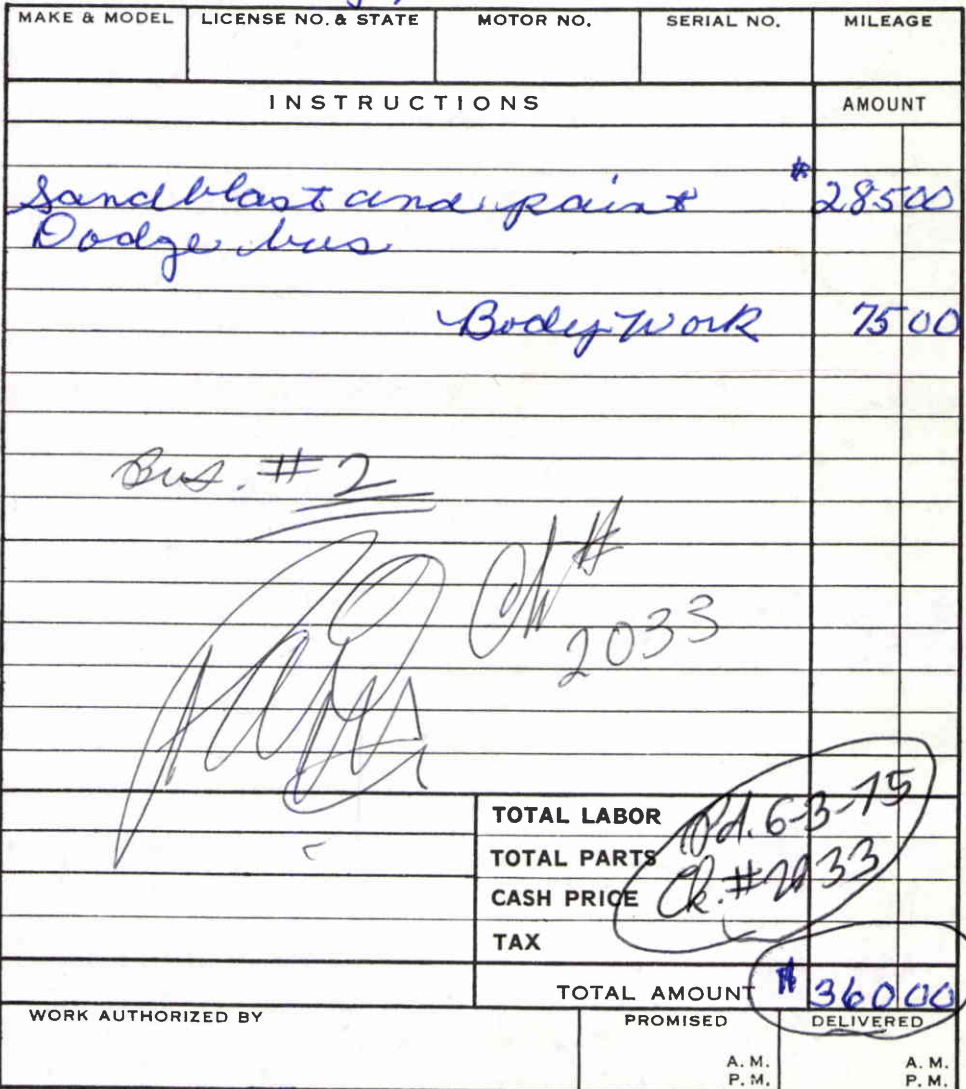 MAKE & MODEL LICENSE NO. & STATE MOTOR NO. SERIAL NO. MILEAGE
INSTRUCTIONS AMOUNT
Sandblast and paint $ 285 00
Dodge bus
Body Work 75 00
Bus. #2
Ck #
2033
TOTAL LABOR Pd. 6-3-75
TOTAL PARTS
CASH PRICE Ck. #2033
TAX
TOTAL AMOUNT $ 360 00
WORK AUTHORIZED BY PROMISED DELIVERED
A. M. A. M.
P. M. P. M.